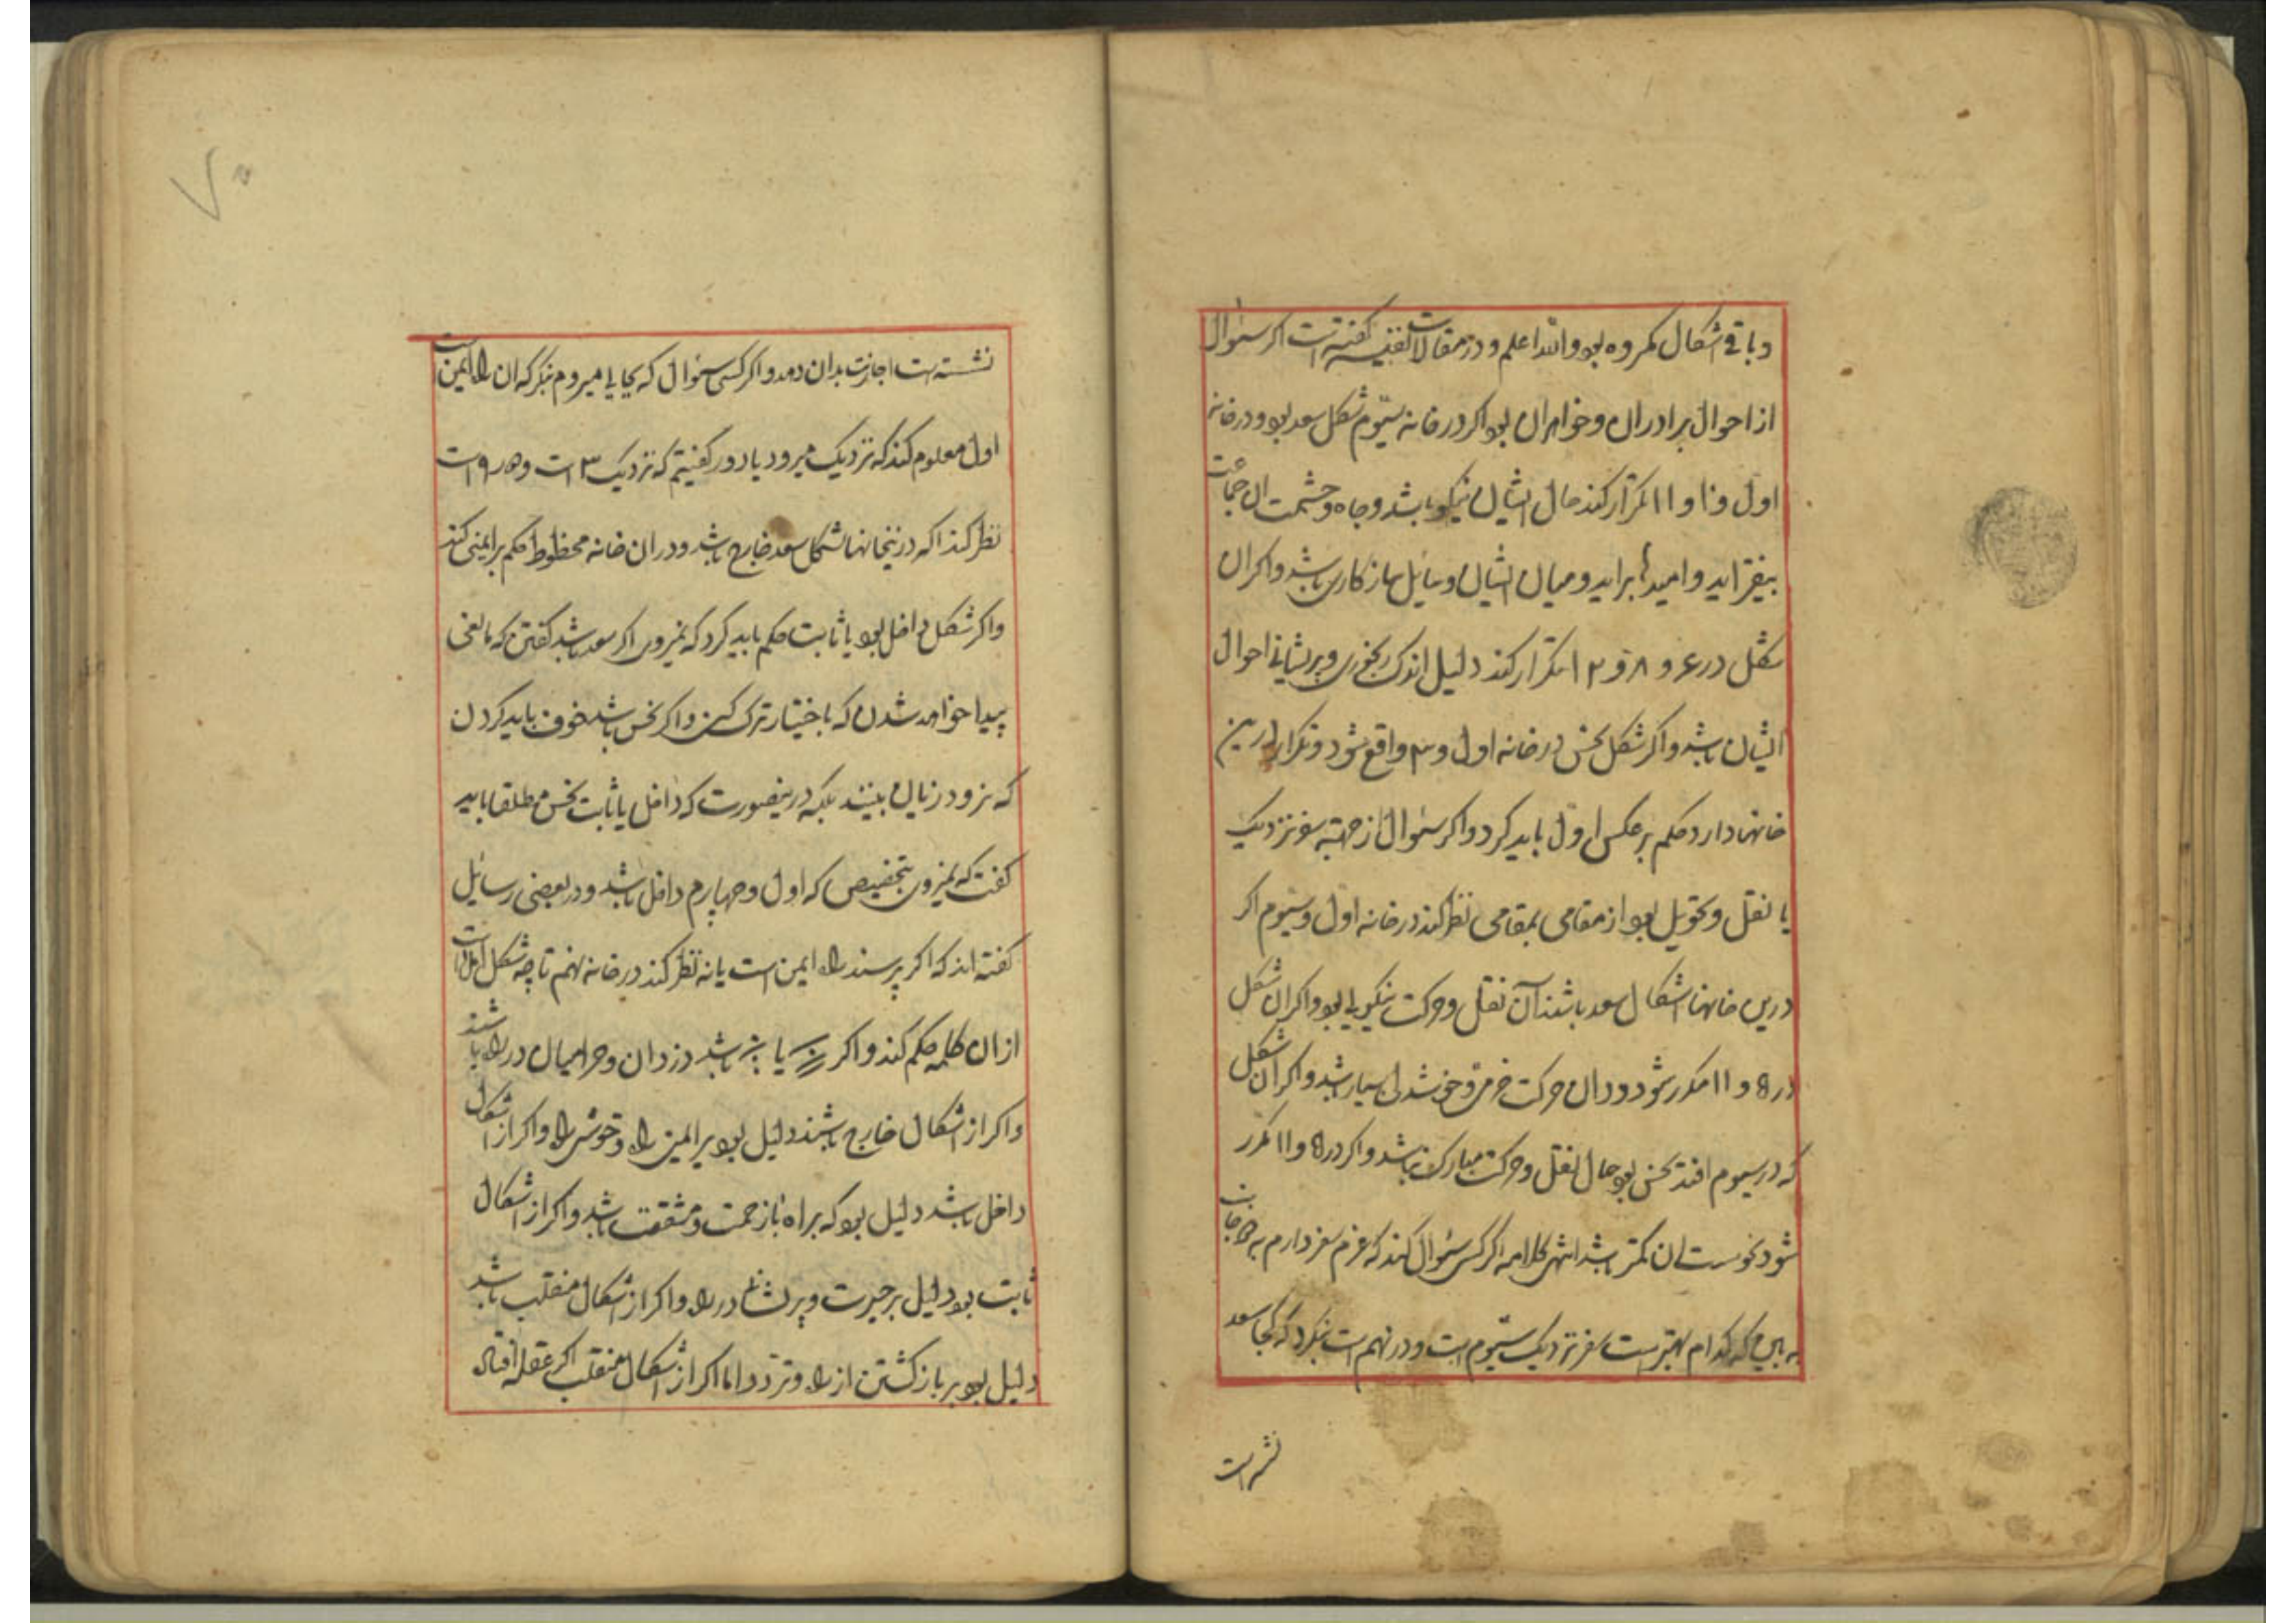 و باقی اشکال مکروه بود والله اعلم و در مقالات گفته است اگر سئوال
از احوال برادران و خواهران بود اگر در خانه سیّوم شکل سعد بود و در خانه
اول و ۱۱ تکرار کند حال ایشان نیکو باشد و جاه و حشمت ان جماعت
بیفزاید و امیدها براید و میان ایشان و سایل سازکاری باشد و اکر ان
شکل در ۶ و ۸ و ۱۲ تکرار کند دلیل اندک رنجوری و پریشانی احوال
ایشان باشد و اکر شکل نحس در خانه اول و ۳ واقع شود و تکرار درین
خانها دارد حکم بر عکس اول باید کرد و اکر سئوال از جهة سفر نزدیک
یا نقل و تحویل بود از مقامی بمقامی نظر کند در خانه اول و سیّوم اکر
درین خانها اشکال سعد باشند آن نقل و حرکت نیکویی بود و اکر ان شکل
در ۵ و ۱۱ مکرر شود در ان حرکت خرمی و خوشدلی بسیار باشد و اکر ان شکل
که در سیوم افتد نحس بود حال نقل و حرکت مبارک نباشد و اکر در ۵ و ۱۱ مکرر
شود نحوست ان کمتر باشد انتهی کلامه اکر کسی سئوال کند که عزم سفر دارم به جانب
که کدام بهتر است سفر نزدیک سیّوم است و در نهم است بنکرد که کجا سعد
نشسته است
نشسته است اجازت بدان دهد و اکر کسی سئوال که بجایی میروم بنکر که ان راه ایمن است
اول معلوم کند که نزدیک میرود یا دور کفتیم که نزدیک ۳ است و دور ۹ است
نظر کند اکر درینخانها شکل سعد خارج باشد و در ان خانه محظوظ حکم بر ایمنی کند
و اکر شکل داخل بود یا ثابت حکم باید کرد که نمیروی اکر سعد باشد کفتن که مانعی
پیدا خواهد شدن که باختیار ترک کنی و اکر نحس باشد خوف باید کردن
که نرود زیان بیند بلکه درینصورت که داخل یا ثابت نحس مطلقا باید
کفت که نمیروی بتخصیص که اول و چهارم داخل باشد و در بعضی رسایل
کفته اند که اکر پرسند راه ایمن است یا نه نظر کند در خانه نهم تا چه شکل امده است
از ان کلمه حکم کند و اکر یا باشد دزدان و حرامیان در راه باشند
و اکر از اشکال خارج باشند دلیل بود بر ایمن راه و خوشی راه و اکر از اشکال
داخل باشد دلیل بود که براه باز زحمت و مشقت باشد و اکر از اشکال
ثابت بود دلیل بر حیرت و پریشانی در راه و اکر از اشکال منقلب باشد
دلیل بود بر باز کشتن از راه و تردد اما اکر از اشکال منقلب اکر عقله افتاد